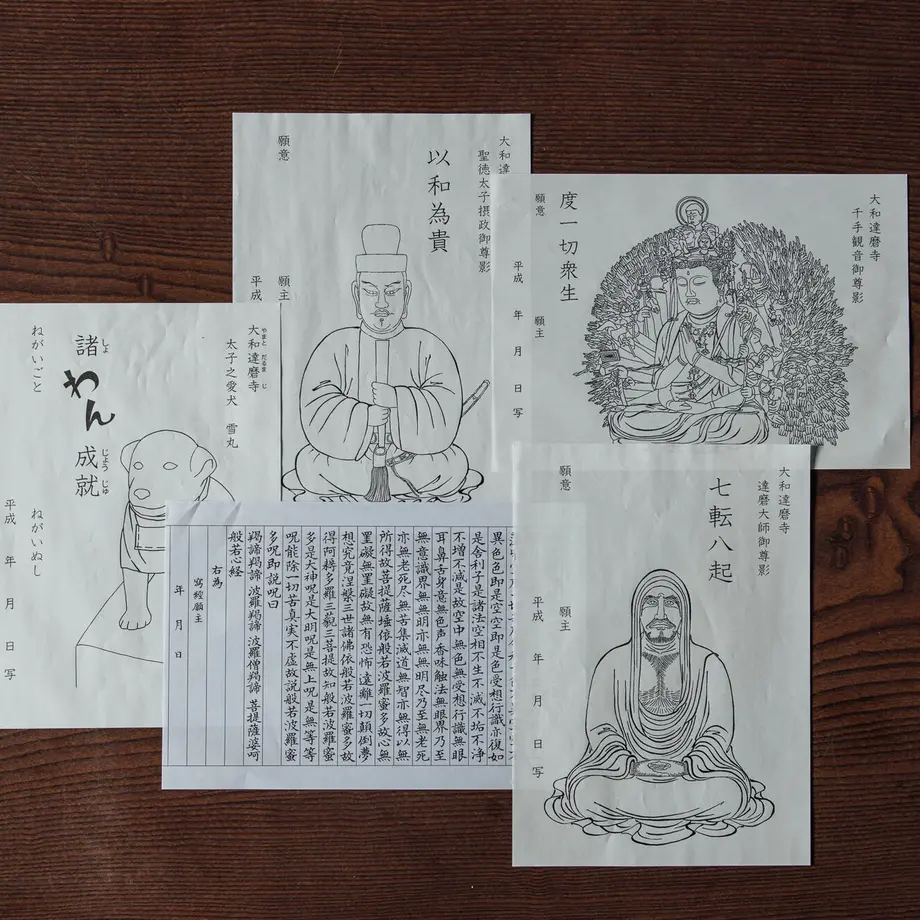 大和達
聖徳太子摂政御尊影
以和為貴
願意
願主
平成
大和達磨寺
千手観音御尊影
度一切衆生
願意
願主
平成 年 月 日写
やまと だるま じ
大和達磨寺
太子之愛犬 雪丸
しょ じょうじゅ
諸わん成就
ねがいごと
ねがいぬし
平成 年 月 日写
異色色即是空空即是色受想行識亦復如
是舎利子是諸法空相不生不滅不垢不浄
不増不減是故空中無色無受想行識無眼
耳鼻舌身意無色声香味触法無眼界乃至
無意識界無無明亦無無明尽乃至無老死
亦無老死尽無苦集滅道無智亦無得以無
所得故菩提薩埵依般若波羅蜜多故心無
罣礙無罣礙故無有恐怖遠離一切顛倒夢
想究竟涅槃三世諸佛依般若波羅蜜多故
得阿耨多羅三藐三菩提故知般若波羅蜜
多是大神呪是大明呪是無上呪是無等等
呪能除一切苦真実不虚故説般若波羅蜜
多呪即説呪曰
羯諦羯諦 波羅羯諦 波羅僧羯諦 菩提薩婆訶
般若心経
右為
寫經願主
年 月 日
大和達磨寺
達磨大師御尊影
七転八起
願意
願主
平成 年 月 日写